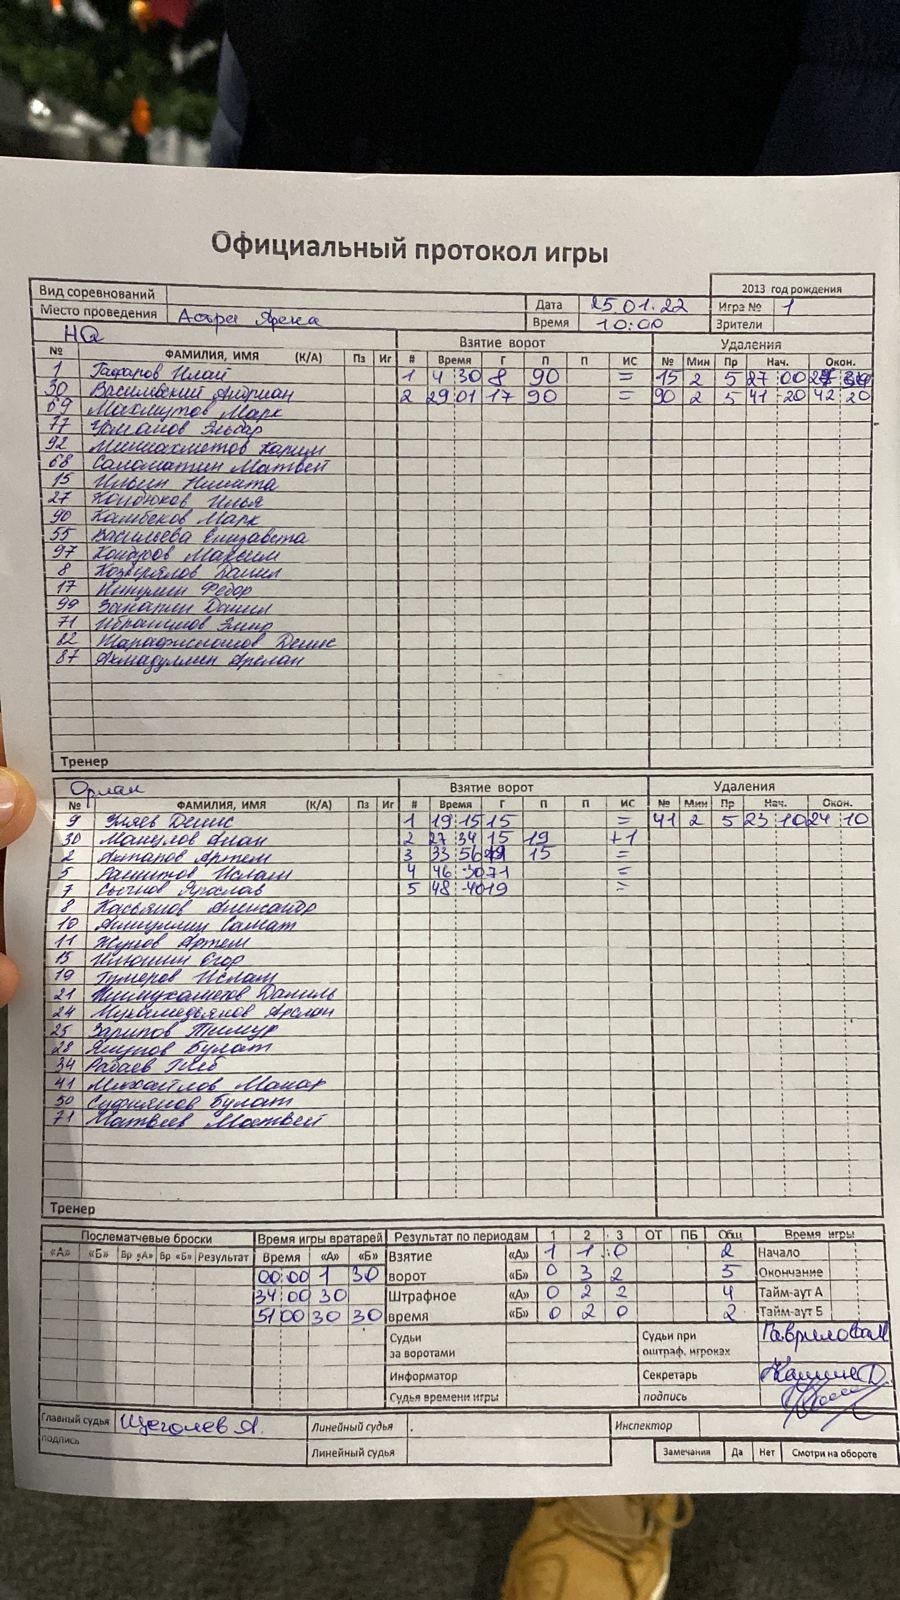 Официальный протокол игры
2013 год рождения
Вид соревнований
Место проведения Астра Арена Дата 25.01.22 Игра № 1
Время 10:00 Зрители
Взятие ворот Удаления
№ ФАМИЛИЯ, ИМЯ (К/А) Пз Иг # Время Г П П ИС № Мин Пр Нач. Окон.
1 Гафаров Илай 1 4:30 8 90 = 15 2 5 27:00
30 Васильский Андриан 2 29:01 17 90 = 90 2 5 41:20 42:20
69 Махмутов Марк
77 Усманов Эльдар
92 Миниахметов Карим
68 Саломатин Матвей
15 Ильин Никита
27 Илья
90 Камбеков Марк
55 Васильева Елизавета
97 Максим
8 Данил
17 Федор
99 Данил
71 Ибрагимов
82 Денис
87 Ахмадуллин Арслан
Тренер
Орлан Взятие ворот Удаления
№ ФАМИЛИЯ, ИМЯ (К/А) Пз Иг # Время Г П П ИС № Мин Пр Нач. Окон.
9 Денис 1 19:15 15 = 41 2 5 23:10 24:10
30 2 27:34 15 19 +1
2 Ахтаров Артем 3 33:56 19 15 =
5 Рашитов Ислам 4 46:30 71 =
7 Сычков Ярослав 5 48:40 19 =
8 Касьянов Александр
10 Самат
11 Артем
15 Егор
19 Тимеров Ислам
21 Даниль
24 Мухамедьянов Арслан
25 Зарипов Тимур
28 Якупов Булат
34 Рабаев Глеб
41 Михайлов Макар
50 Суфиянов Булат
71 Матвеев Матвей
Тренер
Послематчевые броски Время игры вратарей Результат по периодам 1 2 3 ОТ ПБ Общ Время игры
«А» «Б» Вр «А» Вр «Б» Результат Время «А» «Б» Взятие «А» 1 1 0 2 Начало
00:00 1 30 ворот «Б» 0 3 2 5 Окончание
34:00 30 Штрафное «А» 0 2 2 4 Тайм-аут А
51:00 30 30 время «Б» 0 2 0 2 Тайм-аут Б
Судьи за воротами Судьи при оштраф. игроках
Информатор Секретарь
Судья времени игры подпись
Главный судья Щеголев А. Линейный судья Инспектор
подпись Линейный судья Замечания Да Нет Смотри на обороте